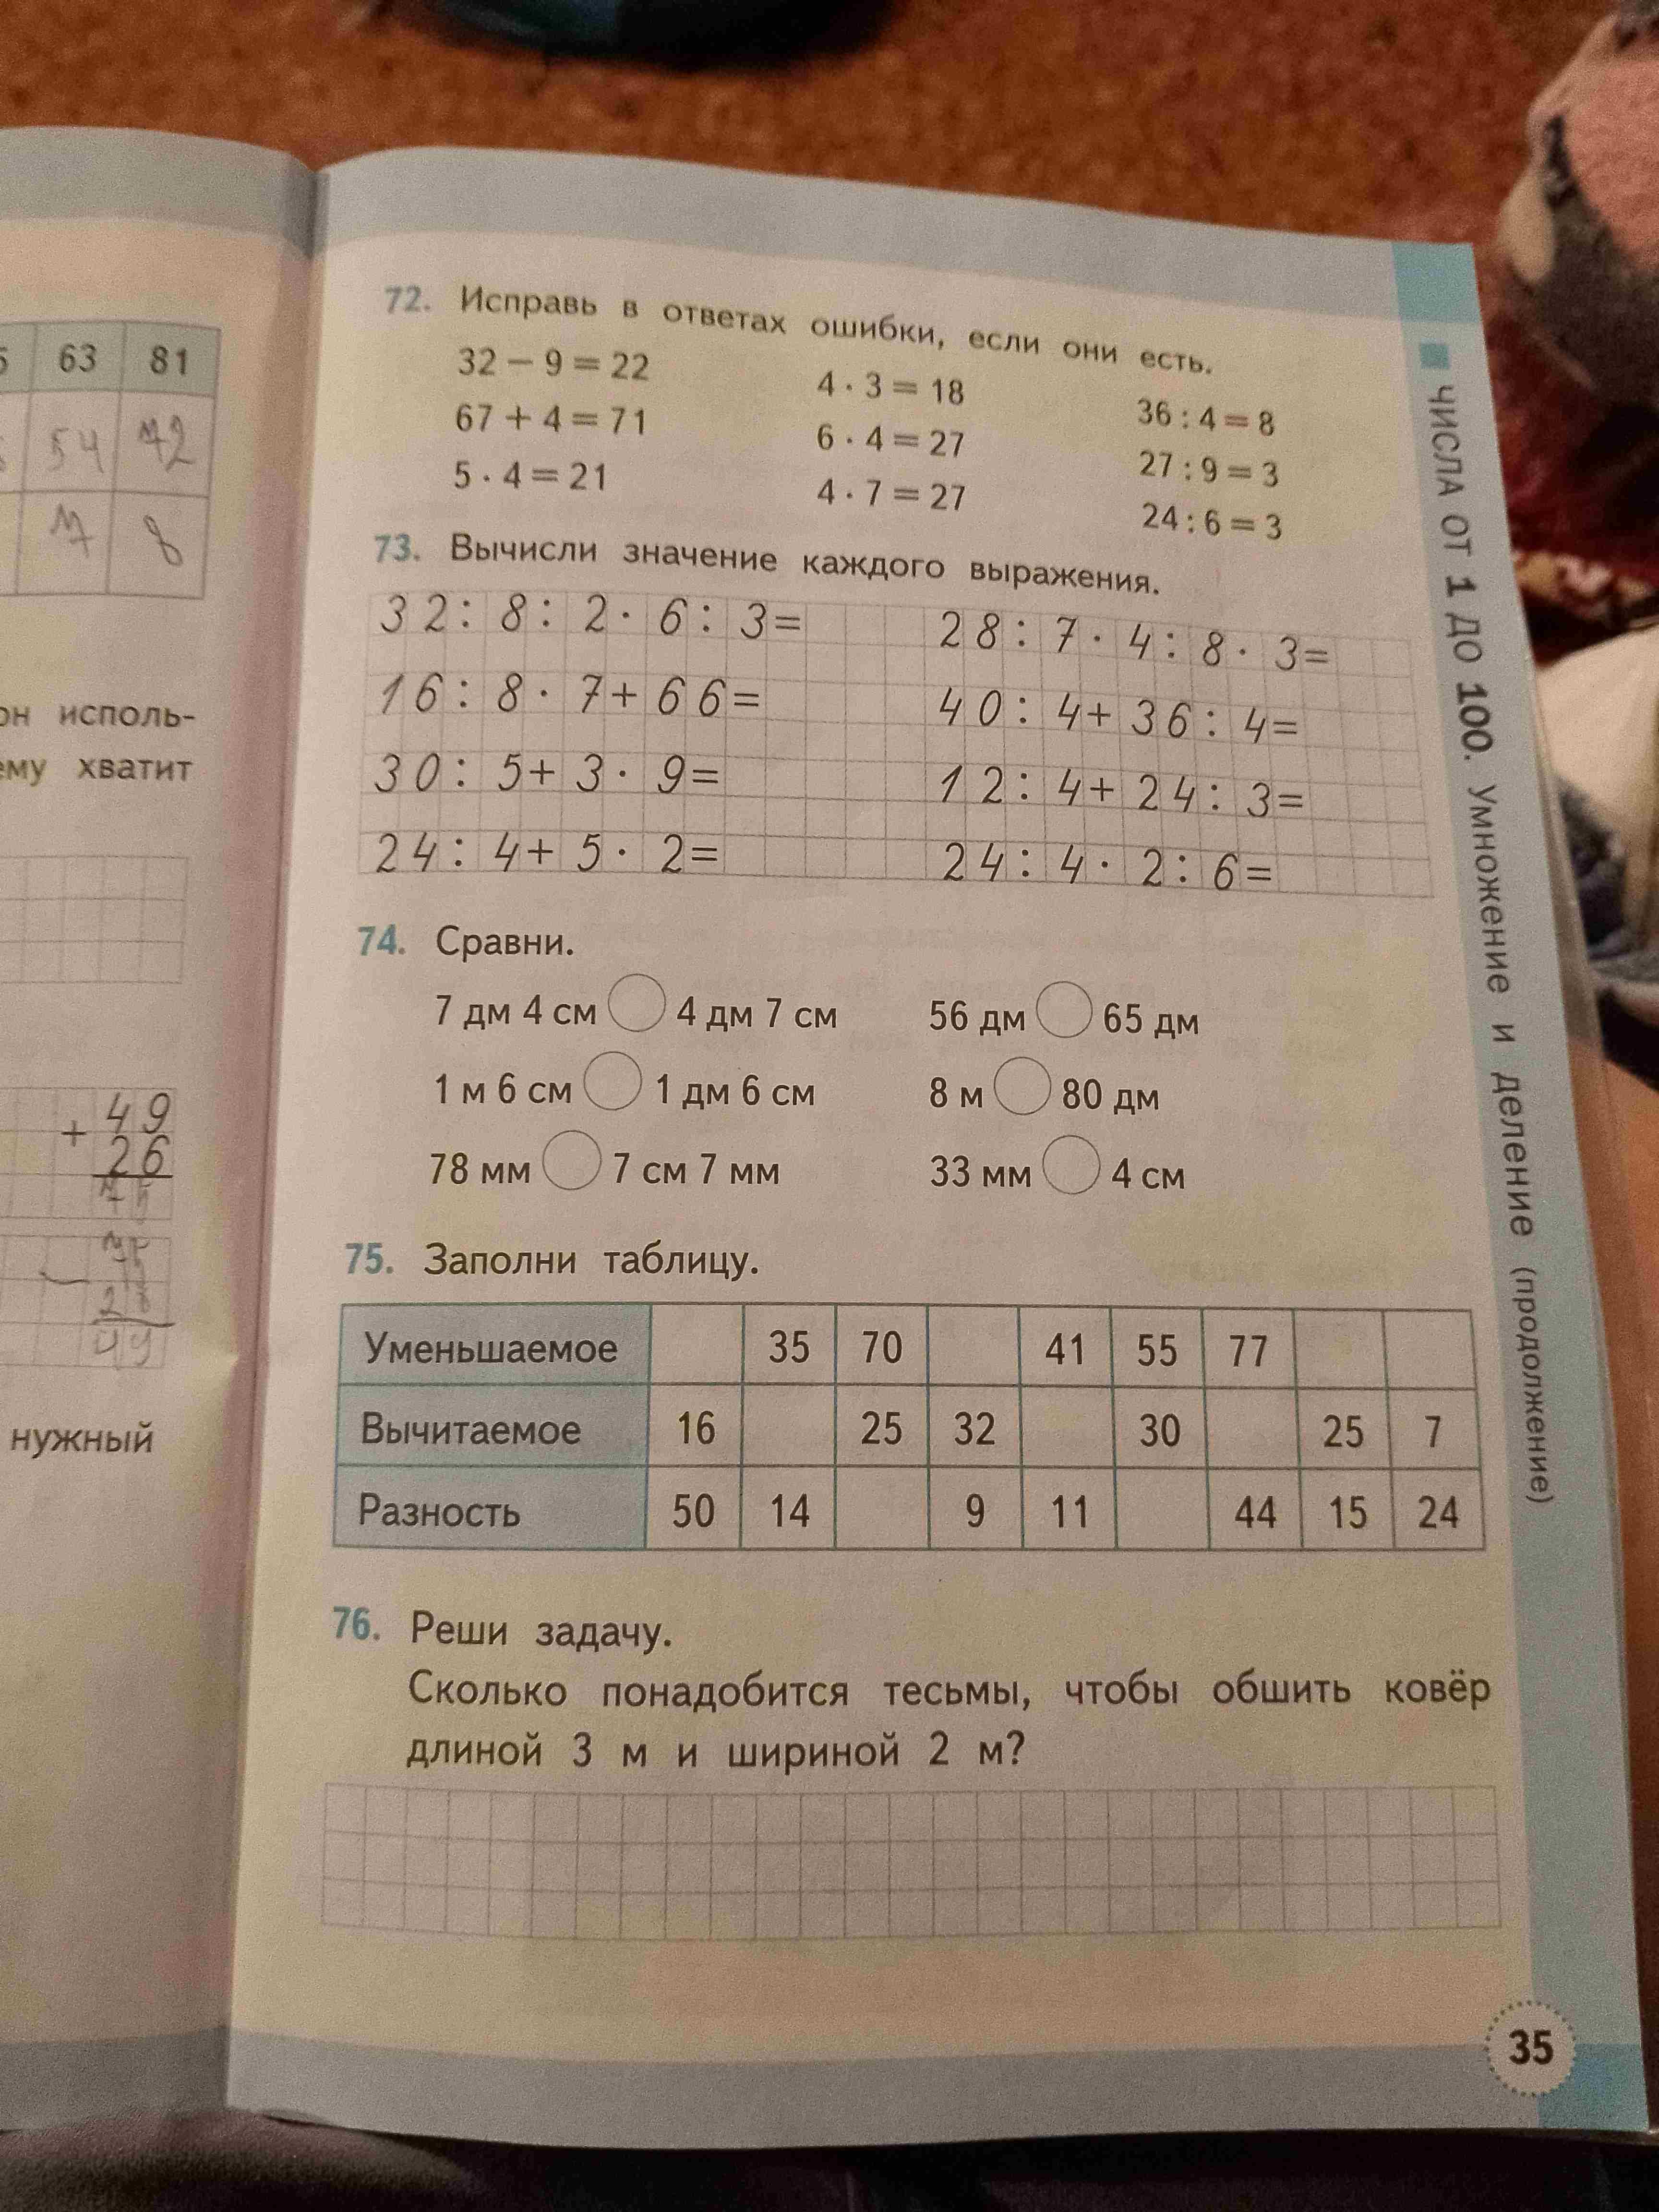 63 81
54 72
7 8
он исполь-
ему хватит
+ 49
26
75
49
нужный
72. Исправь в ответах ошибки, если они есть.
32 − 9 = 22 4 · 3 = 18 36 : 4 = 8
67 + 4 = 71 6 · 4 = 27 27 : 9 = 3
5 · 4 = 21 4 · 7 = 27 24 : 6 = 3
73. Вычисли значение каждого выражения.
32 : 8 : 2 · 6 : 3 = 28 : 7 · 4 : 8 · 3 =
16 : 8 · 7 + 66 = 40 : 4 + 36 : 4 =
30 : 5 + 3 · 9 = 12 : 4 + 24 : 3 =
24 : 4 + 5 · 2 = 24 : 4 · 2 : 6 =
74. Сравни.
7 дм 4 см 4 дм 7 см 56 дм 65 дм
1 м 6 см 1 дм 6 см 8 м 80 дм
78 мм 7 см 7 мм 33 мм 4 см
75. Заполни таблицу.
Уменьшаемое 35 70 41 55 77
Вычитаемое 16 25 32 30 25 7
Разность 50 14 9 11 44 15 24
76. Реши задачу.
Сколько понадобится тесьмы, чтобы обшить ковёр
длиной 3 м и шириной 2 м?
ЧИСЛА ОТ 1 ДО 100. Умножение и деление (продолжение)
35